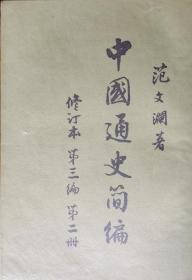 范文瀾著
中國通史简編
修订本 第三編 第二册